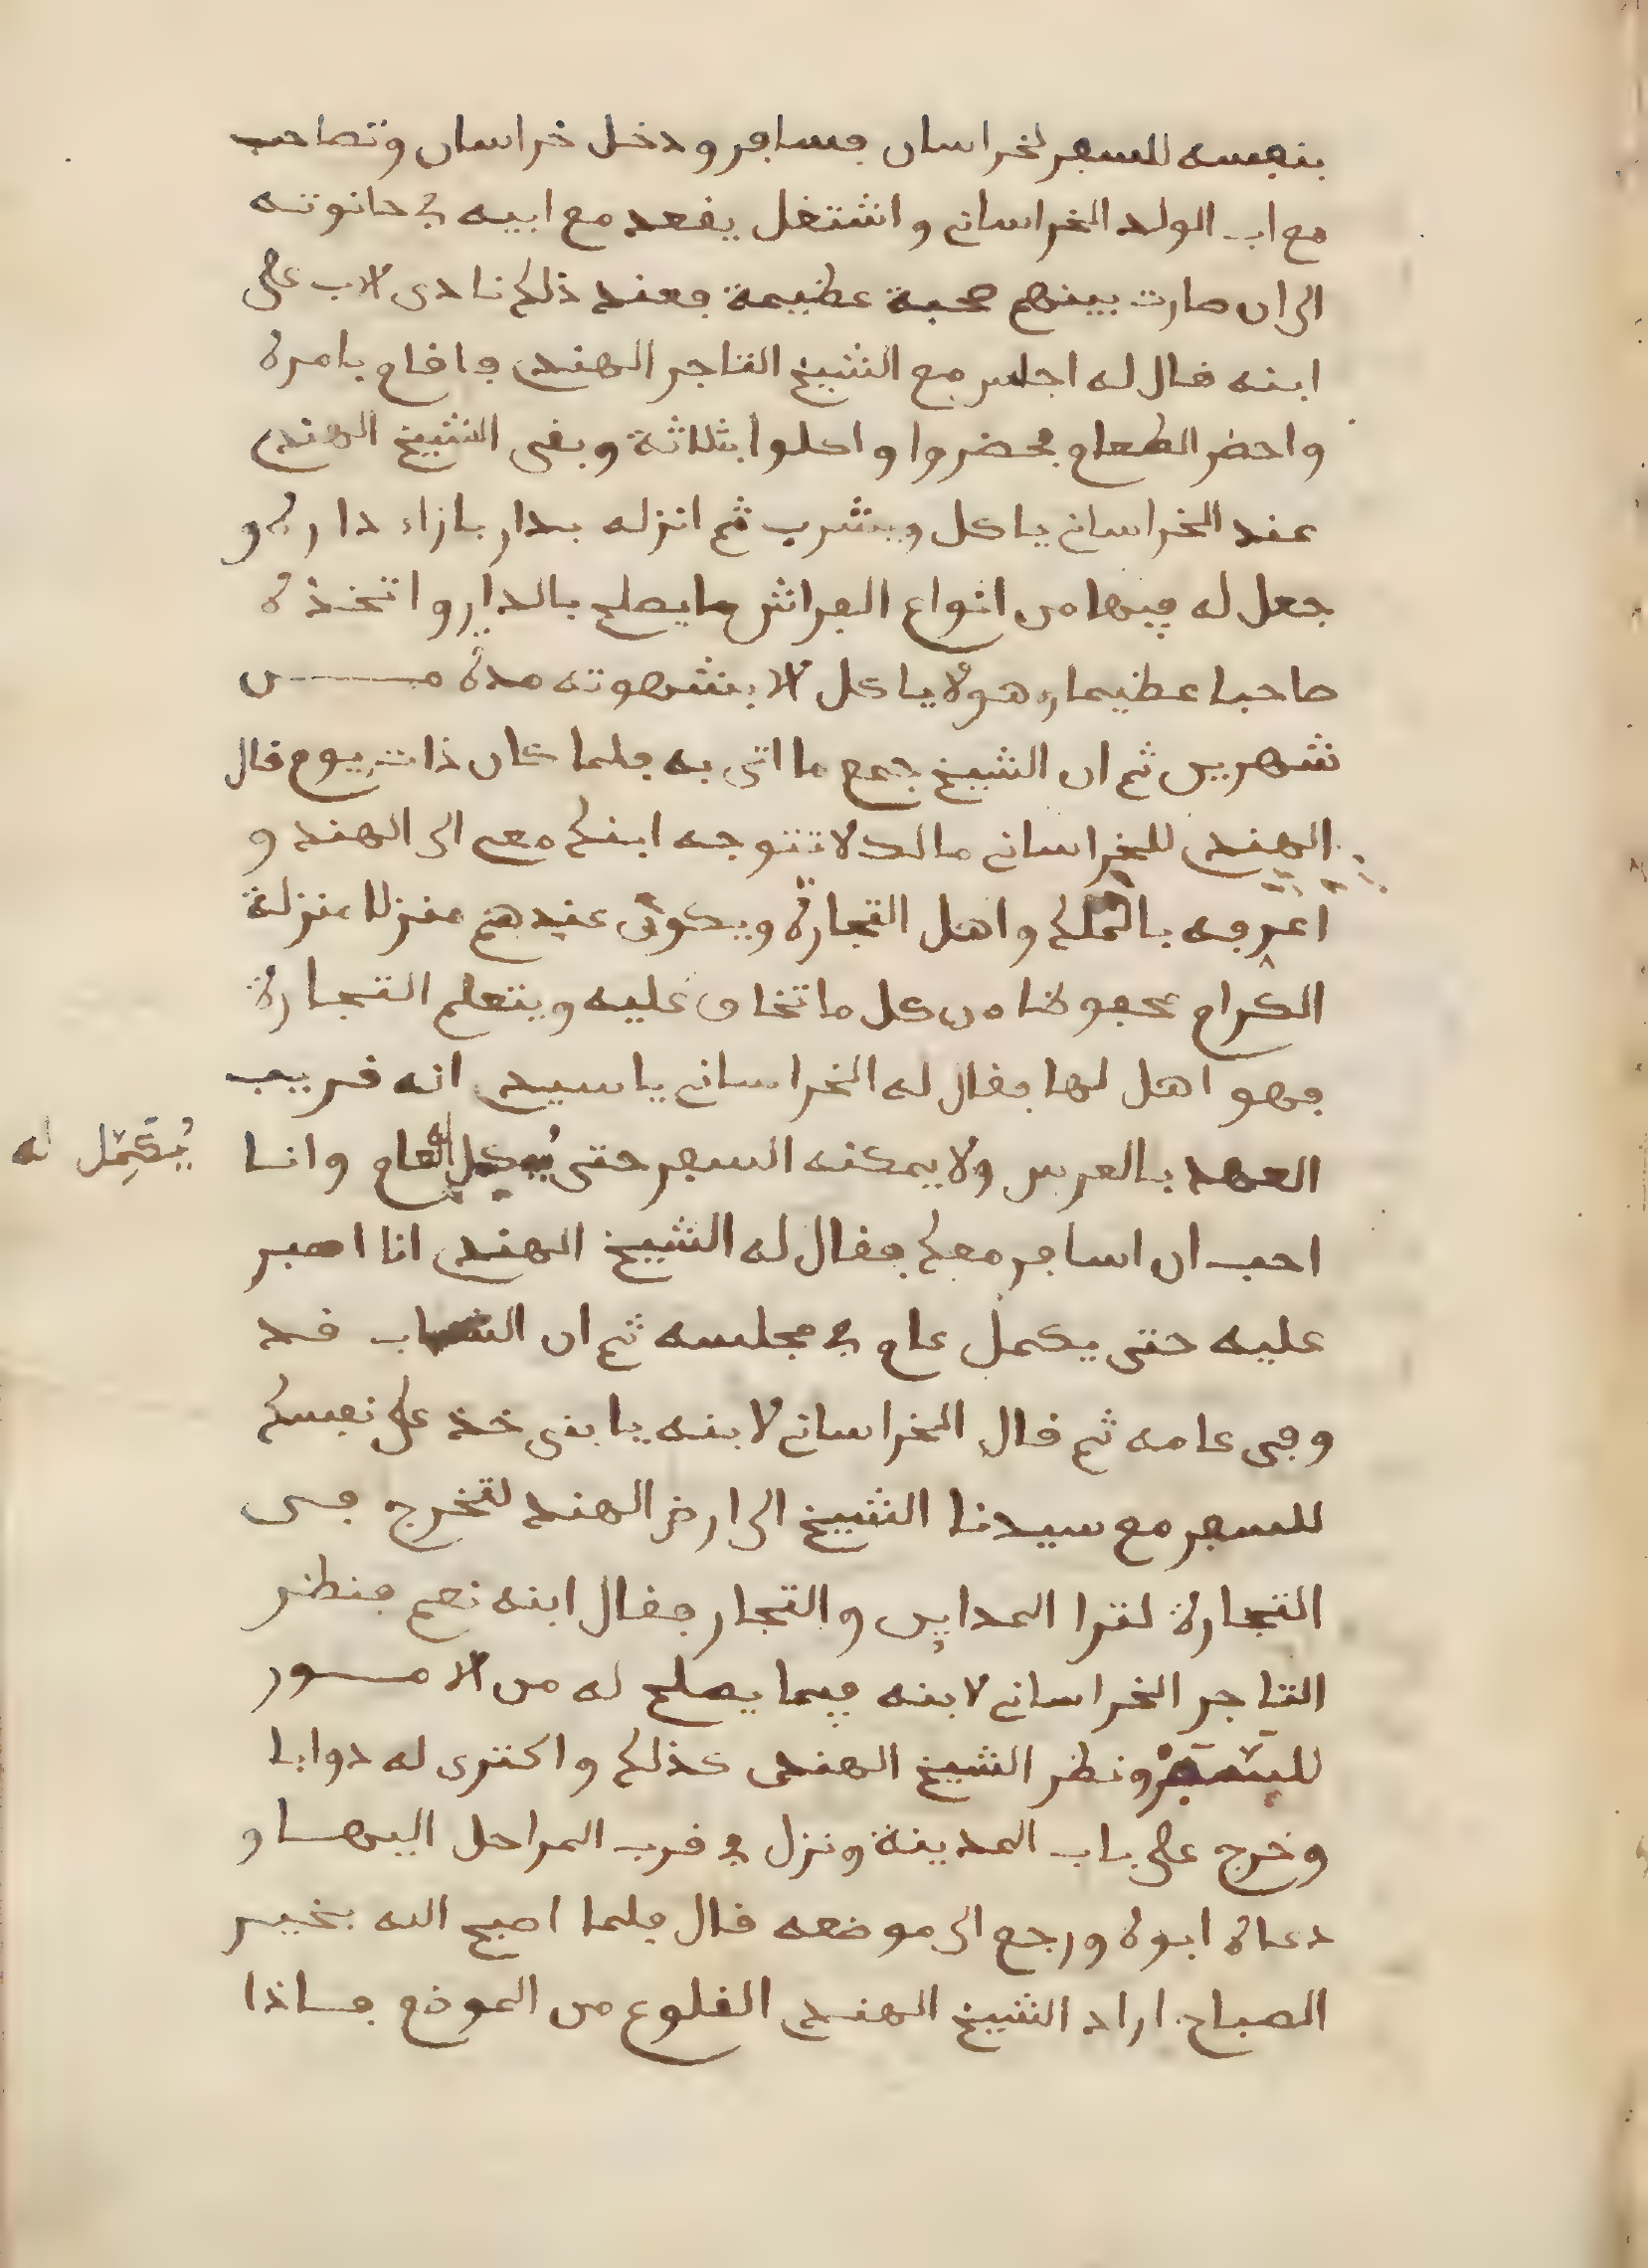 بنفسه للسفر لخراسان فسافر ودخل خراسان وتصاحب
مع اب الولد الخراساني واشتغل يقعد مع ابيه في حانوته
الى ان صارت بينهم صحبة عظيمة فعند ذلك نادى الاب على
ابنه قال له اجلس مع الشيخ التاجر الهندي فاقام بامره
واحضر الطعام فحضروا واكلوا ثلاثة وبقى الشيخ الهندي
عند الخراساني ياكل ويشرب ثم انزله بدار بازاء داره و
جعل له فيها من انواع الفراش ما يصلح بالدار واتخذه
صاحبا عظيما وهو لا ياكل الا بشهوته مدة مــن
شهرين ثم ان الشيخ جمع ما اتى به فلما كان ذات يوم قال
الهندي للخراساني مالك لا تتوجه ابنك معي الى الهند و
اعرفه بالملك واهل التجارة ويكون عندهم منزلا منزلة
الكرام محفوظا من كل ما تخاف عليه ويتعلم التجارة
فهو اهل لها فقال له الخراساني يا سيدي انه قريب
العهد بالعرس ولا يمكنه السفر حتى يكمل له العام وانا
يُكَمِّل له
احب ان اسافر معك فقال له الشيخ الهندي انا اصبر
عليه حتى يكمل عام في مجلسه ثم ان الشاب قد
وفى عامه ثم قال الخراساني لابنه يا بنى خذ على نفسك
للسفر مع سيدنا الشيخ الى ارض الهند لتخرج فـى
التجارة لترا المداين والتجار فقال ابنه نعم فنظر
التاجر الخراساني لابنه فيما يصلح له من الامـور
للسفر ونظر الشيخ الهندى كذلك واكترى له دوابا
وخرج على باب المدينة ونزل في قرب المراحل اليها و
دعاه ابوه ورجع الى موضعه قال فلما اصبح الله بخير
الصباح اراد الشيخ الهندي القلوع من الموضع فـاذا